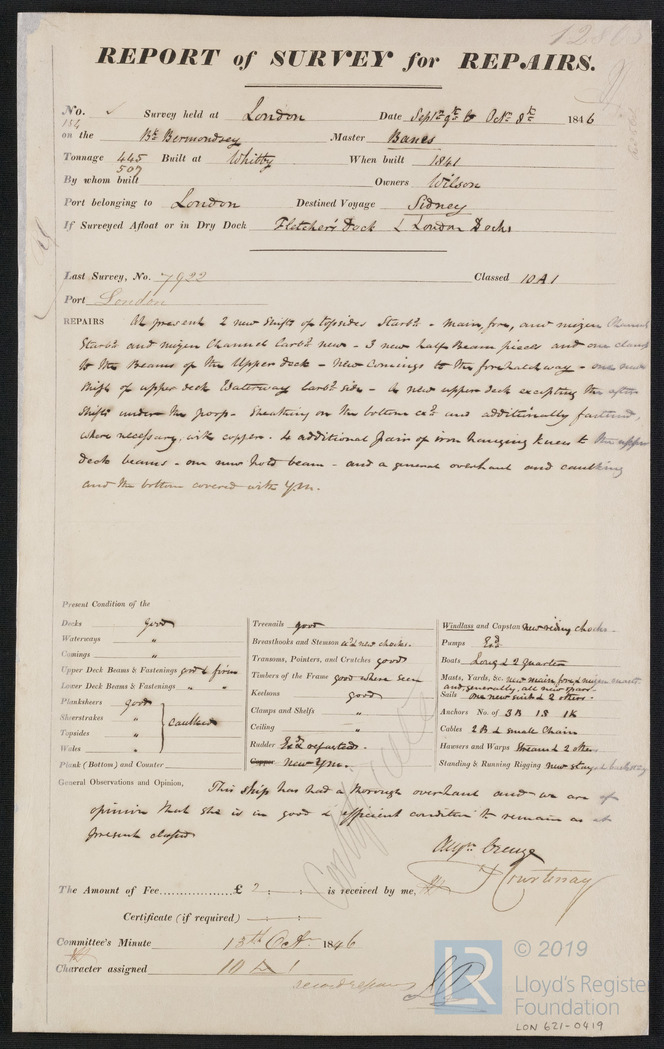 REPORT of SURVEY for REPAIRS.
No. Survey held at London Date Septr 9th to Octr 8th 1846
184
on the Bk Bermondsey Master Banes
Tonnage 445 Built at Whitby When built 1841
507
By whom built Owners Wilson
Port belonging to London Destined Voyage Sidney
If Surveyed Afloat or in Dry Dock Fletcher's Dock & London Docks
Last Survey, No. 7922 Classed 10 A 1
Port London
REPAIRS At present 2 new Shifts of topsides Starbd - main, fore, and mizen Channel
Starbd and mizen Channel Larbd new - 3 new half Beam pieces and one clamp
to the Beams of the Upper deck - New Comings to the forehatchway - one new
Shift of upper deck Waterway Larbd side - A new upper deck excepting the after
Shifts under the poop - Sheathing on the bottom and additionally fastened,
where necessary, with copper. 4 additional pair of iron hanging knees to the upper
deck beams - one new hold beam - and a general overhaul and caulking
and the bottom covered with Y.M.
Present Condition of the
Decks good
Waterways "
Comings "
Upper Deck Beams & Fastenings good & firm
Lower Deck Beams & Fastenings " "
Planksheers good
Sheerstrakes "
Topsides "
Wales "
Caulked
Plank (Bottom) and Counter
Treenails good
Breasthooks and Stemson with new chocks.
Transoms, Pointers, and Crutches good
Timbers of the Frame good where seen
Keelsons good
Clamps and Shelfs "
Ceiling "
Rudder Exd & refastd.
Copper New Y.M.
Windlass and Capstan new riding chocks
Pumps Exd
Boats Long & 2 Quarter
Masts, Yards, &c. new main, fore & mizen masts
and, generally, all new spars.
Sails one new suit & 2 others.
Anchors No. of 3B 1S 1K
Cables 2 B & small Chain
Hawsers and Warps Stream & 2 others
Standing & Running Rigging new stays & backstays
General Observations and Opinion, This ship has had a thorough overhaul and we are of
opinion that she is in good & efficient condition to remain as at
present classed
Augn Creuze
Courtenay
The Amount of Fee £ 2 : : is received by me,
Certificate (if required)
Committee's Minute 13th Octr 1846
Character assigned 10 A 1
record repairs
Certificate
LR
© 2019
Lloyd's Register
Foundation
LON 621-0419